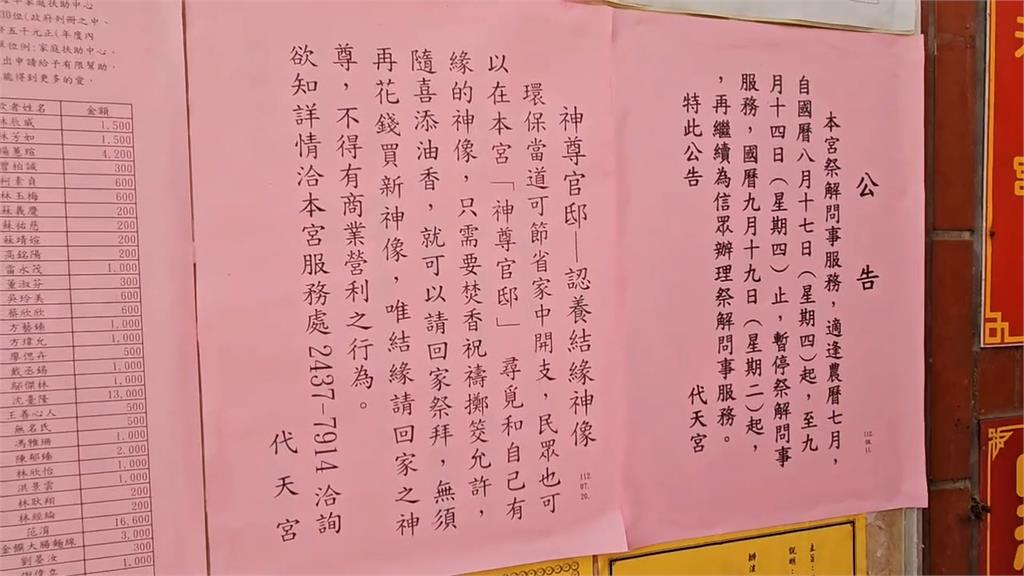 公告
本宮祭解問事服務，適逢農曆七月，
自國曆八月十七日（星期四）起，至九
月十四日（星期四）止，暫停祭解問事
服務，國曆九月十九日（星期二）起，
，再繼續為信眾辦理祭解問事服務。
特此公告
代天宮
112.08.11.
神尊官邸—認養結緣神像
112.07.20.
環保當道可節省家中開支，民眾也可
以在本宮「神尊官邸」 尋覓和自己有
緣的神像，只需要焚香祝禱擲筊允許，
隨喜添油香，就可以請回家祭拜，無須
再花錢買新神像，唯結緣請回家之神
尊，不得有商業營利之行為。
欲知詳情洽本宮服務處2437-7914洽詢
代天宮
30位(政府列冊之中、
五千元正(年度內
單位例：家庭扶助中心、
出申請給予有限幫助，
能得到更多的愛，
者姓名 金額
1,500
林芳如 1,500
4,200
曾柏誠 300
柯素貞 600
林玉梅 600
蘇義慶 200
蘇祐慈 200
蘇靖媗 200
高銘陽 200
雷永茂 1,000
董淑芬 300
吳玲美 600
蔡欣欣 600
方藝臻 1,000
方瑋允 1,000
廖偲卉 500
戴丞錫 1,000
鄔傑林 1,000
沈臺隆 13,000
王善心人 500
無名氏 500
馮雅珊 1,000
陳郁臻 2,000
林欣怡 1,000
洪景雲 1,000
林耿翔 200
林經綸 200
范淯 16,600
金鑛大腸麵線 3,000
劉晏汝 300
1,000
主旨：
說明：
辦法